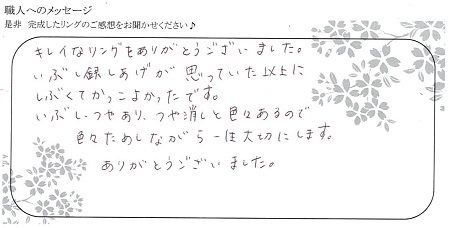 職人へのメッセージ
是非 完成したリングのご感想をお聞かせください♪
キレイなリングをありがとうございました。
いぶし銀しあげが思っていた以上に
しぶくてかっこよかったです。
いぶし・つやあり、つや消しと色々あるので
色々ためしながら一生大切にします。
ありがとうございました。